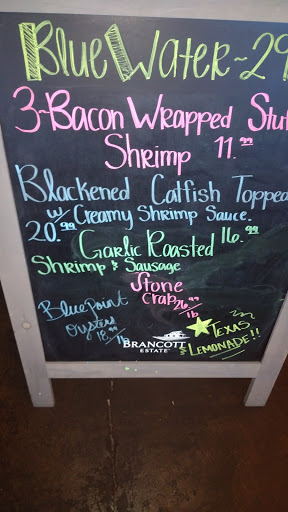 BLUE WATER ~ 29
3-BACON WRAPPED Stuf
SHRIMP 11.99
BLACKENED Catfish Topped
w/ Creamy Shrimp Sauce.
20.99
GARLIC ROASTED 16.99
SHRIMP & SAUSAGE
STONE
CRAB 26.99
lb
Blue Point
Oysters
lb
TEXAS
LEMONADE!!
BRANCOTT
ESTATE